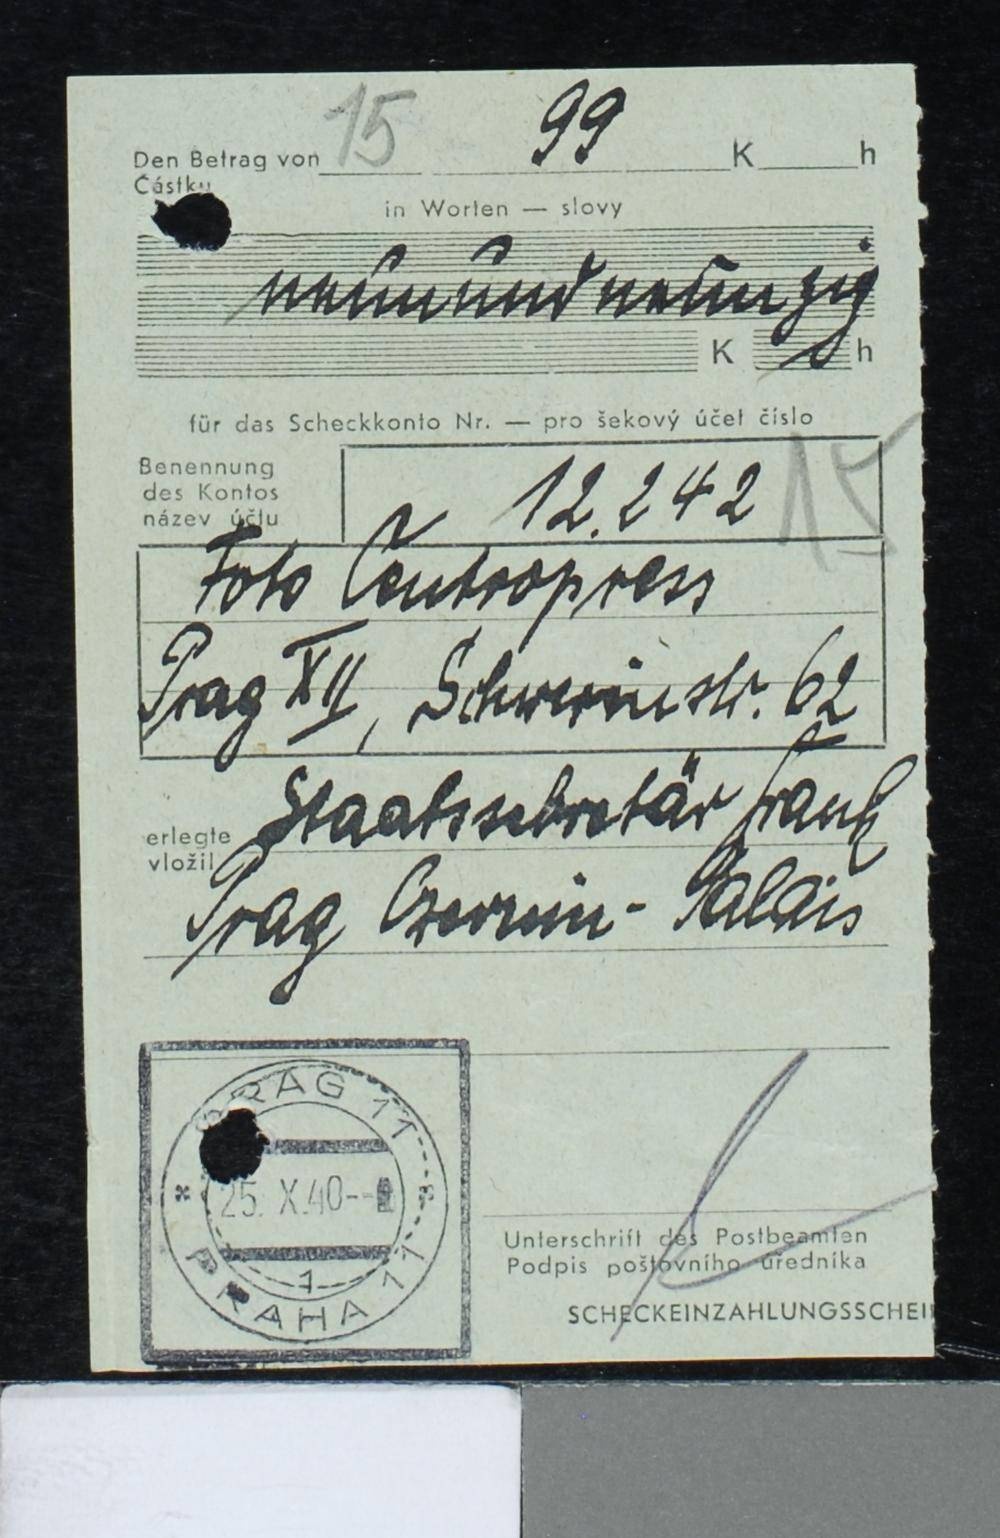 15 99
Den Betrag von K h
Částku
in Worten — slovy
neunundneunzig
K h
für das Scheckkonto Nr. — pro šekový účet číslo
15
Benennung
des Kontos
název účtu
12.242
Foto Centropress
Prag XII, Schwerinstr. 62
Staatssekretär Frank
erlegte
vložil
Prag Czernin-Palais
PRAG 11
25. X. 40
1
PRAHA 11
Unterschrift des Postbeamten
Podpis poštovního úředníka
SCHECKEINZAHLUNGSSCHEI